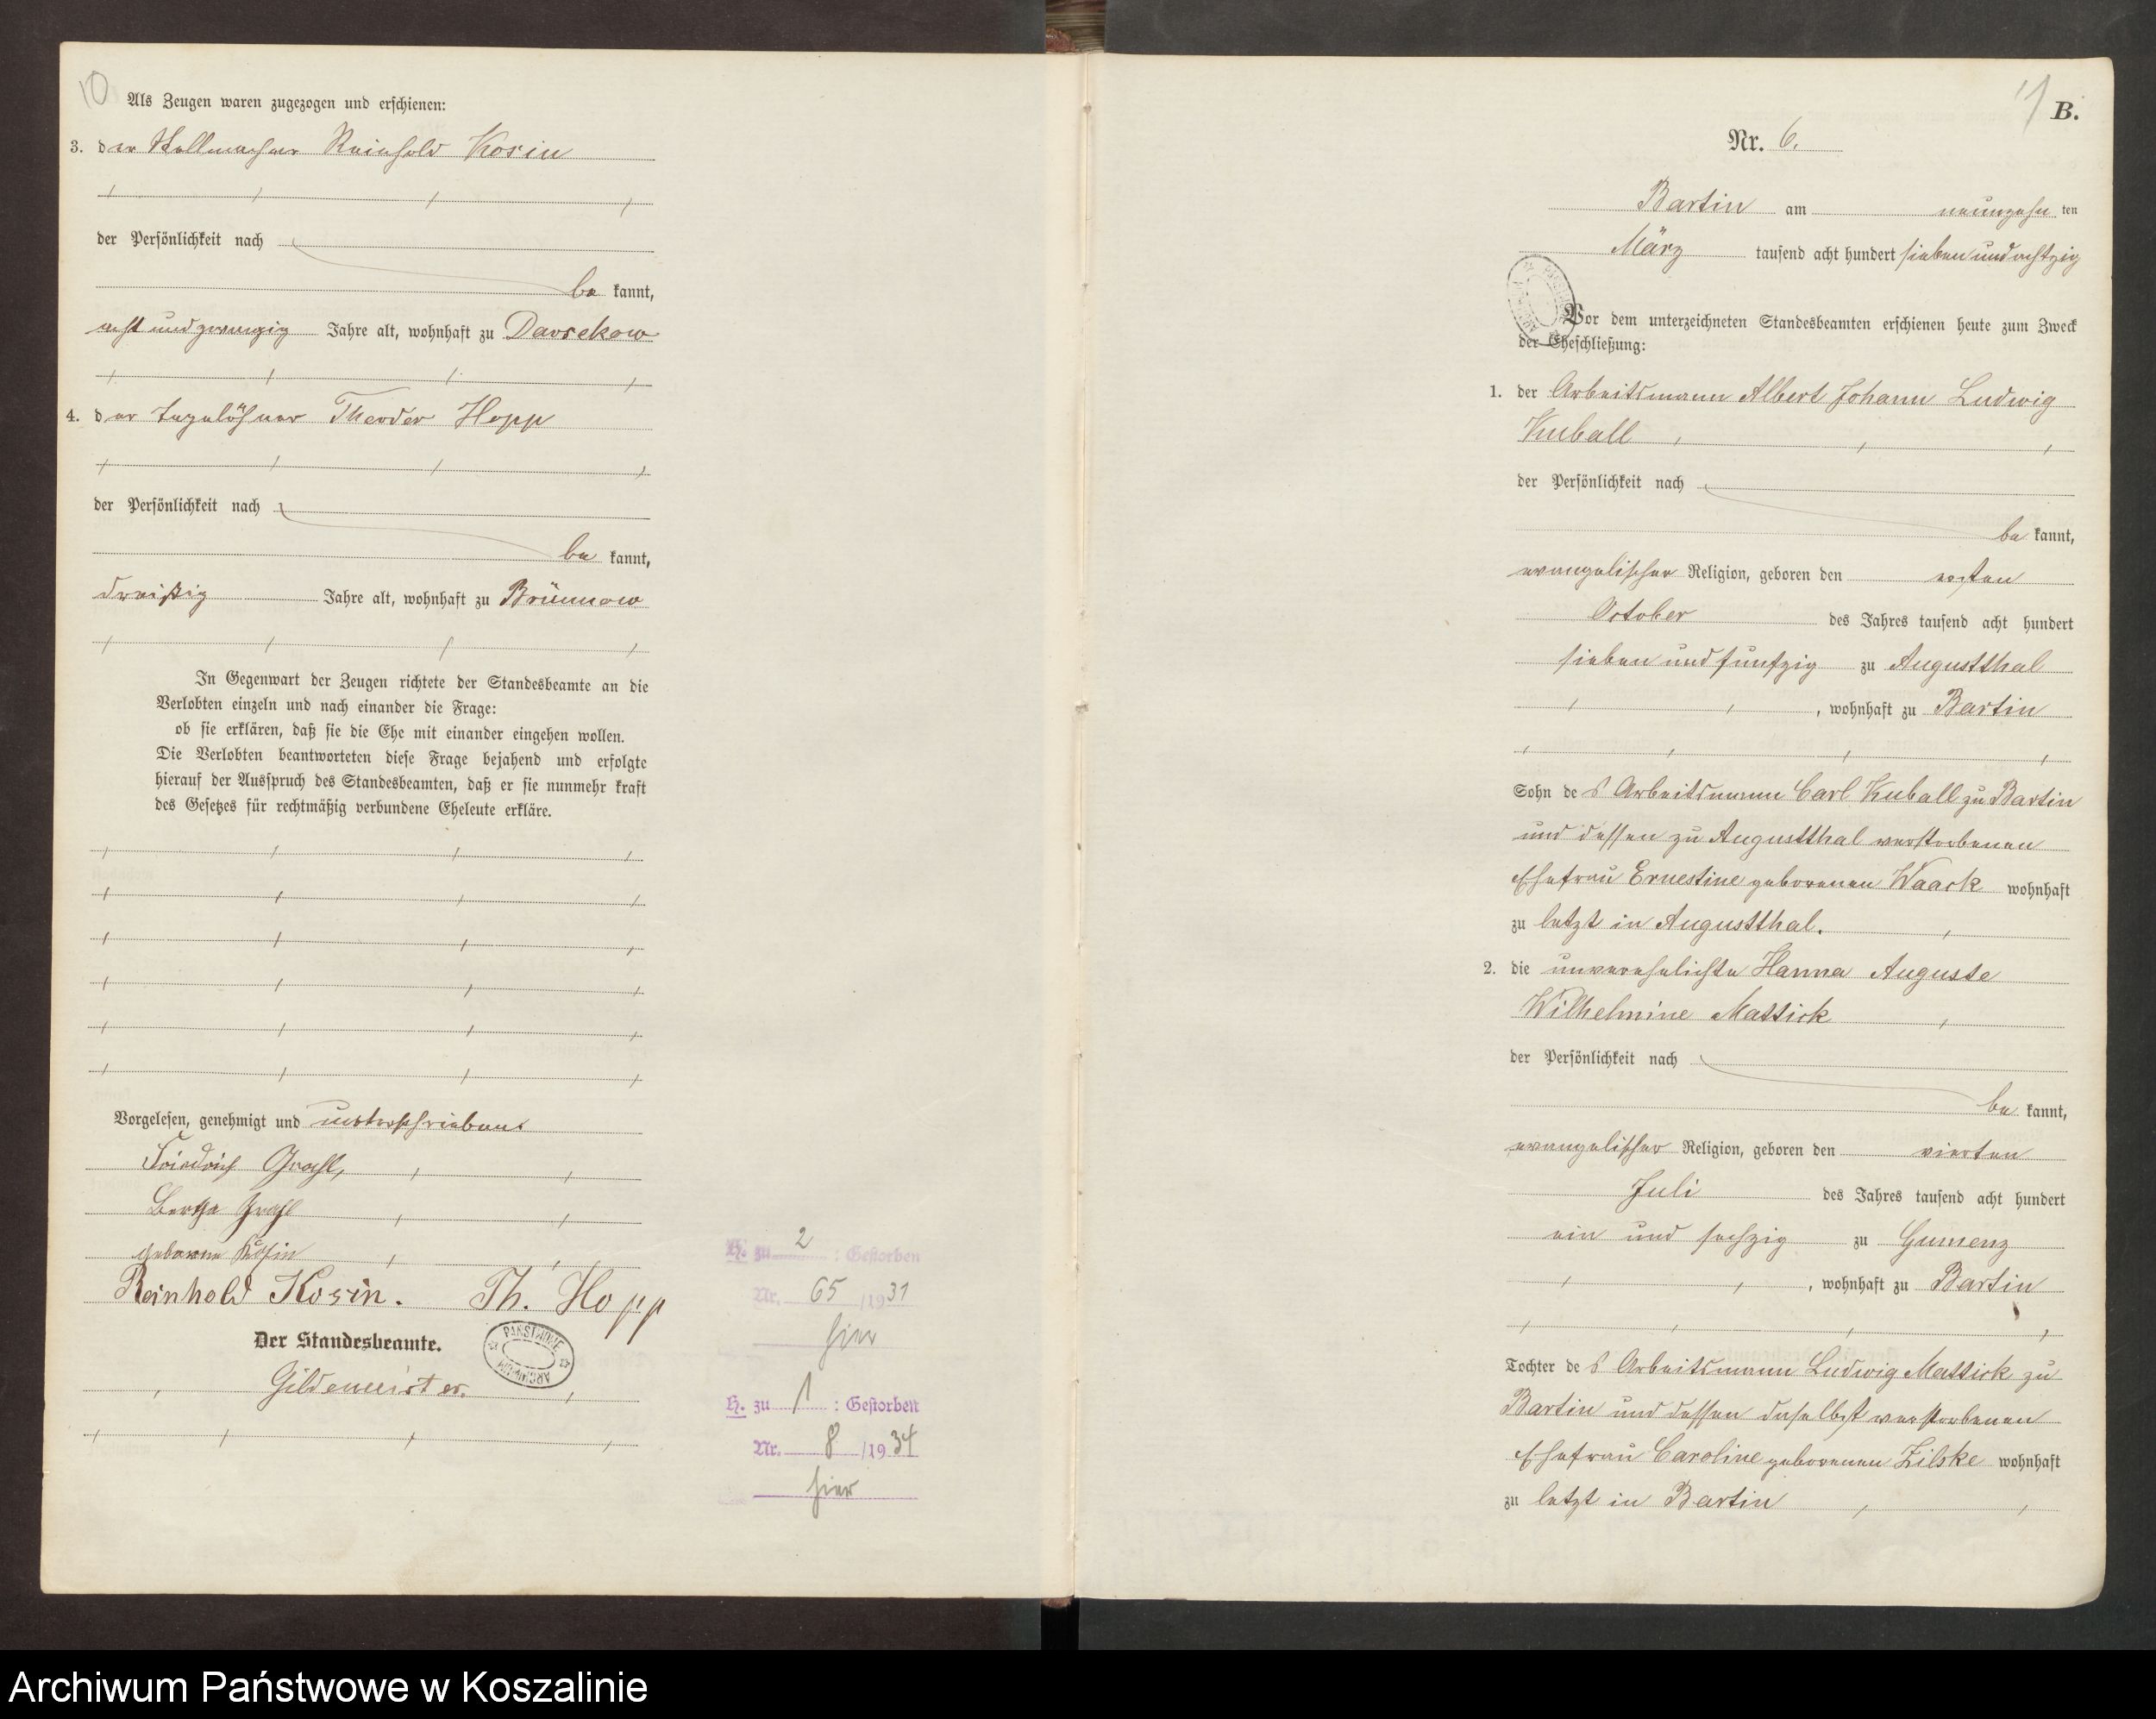 10
Als Zeugen waren zugezogen und erschienen:
3. der Stellmacher Reinhold Kosin
der Persönlichkeit nach
be kannt,
acht und zwanzig Jahre alt, wohnhaft zu Darsekow
4. der Tagelöhner Theodor Hopp
der Persönlichkeit nach
be kannt,
dreißig Jahre alt, wohnhaft zu Brünnow
In Gegenwart der Zeugen richtete der Standesbeamte an die
Verlobten einzeln und nach einander die Frage:
ob sie erklären, daß sie die Ehe mit einander eingehen wollen.
Die Verlobten beantworteten diese Frage bejahend und erfolgte
hierauf der Ausspruch des Standesbeamten, daß er sie nunmehr kraft
des Gesetzes für rechtmäßig verbundene Eheleute erkläre.
Vorgelesen, genehmigt und unterschrieben
Friedrich Grahl,
Bertha Grahl
geborene Kosin
Reinhold Kosin. Th. Hopp
Der Standesbeamte.
Gildemeister.
PAŃSTWOWE ARCHIWUM
H. zu 2 : Gestorben
Nr. 65 /1931
hier
H. zu 1 : Gestorben
Nr. 8 /1934
hier
11
B.
Nr. 6.
Bartin am neunzehn ten
März tausend acht hundert sieben und achtzig
Vor dem unterzeichneten Standesbeamten erschienen heute zum Zweck
der Eheschließung:
1. der Arbeitsmann Albert Johann Ludwig
Kuball
der Persönlichkeit nach
be kannt,
evangelischer Religion, geboren den ersten
October des Jahres tausend acht hundert
sieben und funfzig zu Augustthal
, wohnhaft zu Bartin
Sohn des Arbeitsmann Carl Kuball zu Bartin
und dessen zu Augustthal verstorbenen
Ehefrau Ernestine geborenen Waack wohnhaft
zu letzt in Augustthal.
2. die unverehelichte Hanna Auguste
Wilhelmine Mattick
der Persönlichkeit nach
be kannt,
evangelischer Religion, geboren den vierten
Juli des Jahres tausend acht hundert
ein und sechzig zu Gumenz
, wohnhaft zu Bartin
Tochter des Arbeitsmann Ludwig Mattick zu
Bartin und dessen daselbst verstorbenen
Ehefrau Caroline geborenen Zilske wohnhaft
zu letzt in Bartin
Archiwum Państwowe w Koszalinie